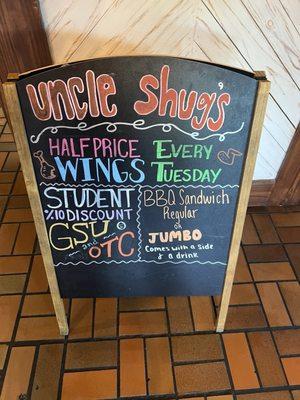 uncle Shug's
HALF PRICE EVERY
WINGS TUESDAY
STUDENT
%10 DISCOUNT
GSU and
OTC
BBQ Sandwich
Regular
or
JUMBO
COMES WITH A SIDE
& A DRINK